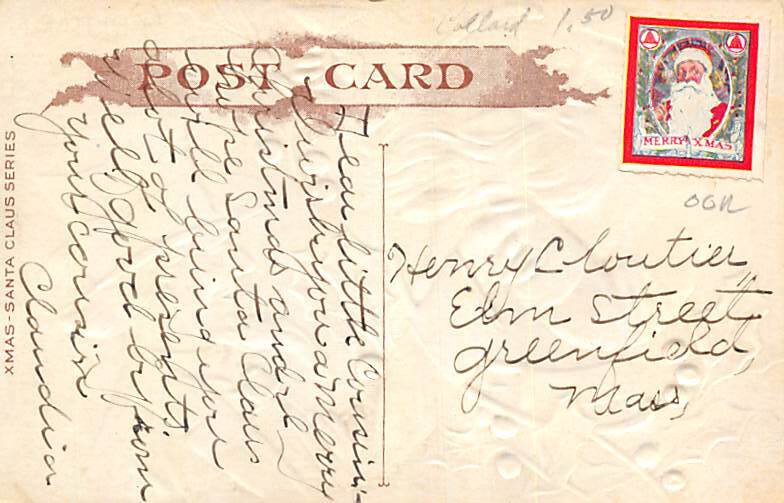 Collard 1.50
POST CARD
MERRY XMAS
OGN
XMAS-SANTA CLAUS SERIES
Dear little Cousin:-
I wish you a Merry
Christmas and I
hope Santa Claus
will bring you
a lot of presents.
Well good by from
your cousin
Claudia
Henry Cloutier,
Elm Street
Greenfield,
Mass,